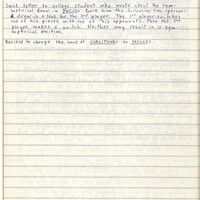 Sent letter to college student who wrote about the sym-
metrical draw in       . Gave him the following two options:
A draw is a loss for the 1st player. The 1st player switches
one of his pieces with one of his opponent's. Then the 2nd
player makes a switch. Neither may result in a sym-
metrical position.
Decided to change the name of          to